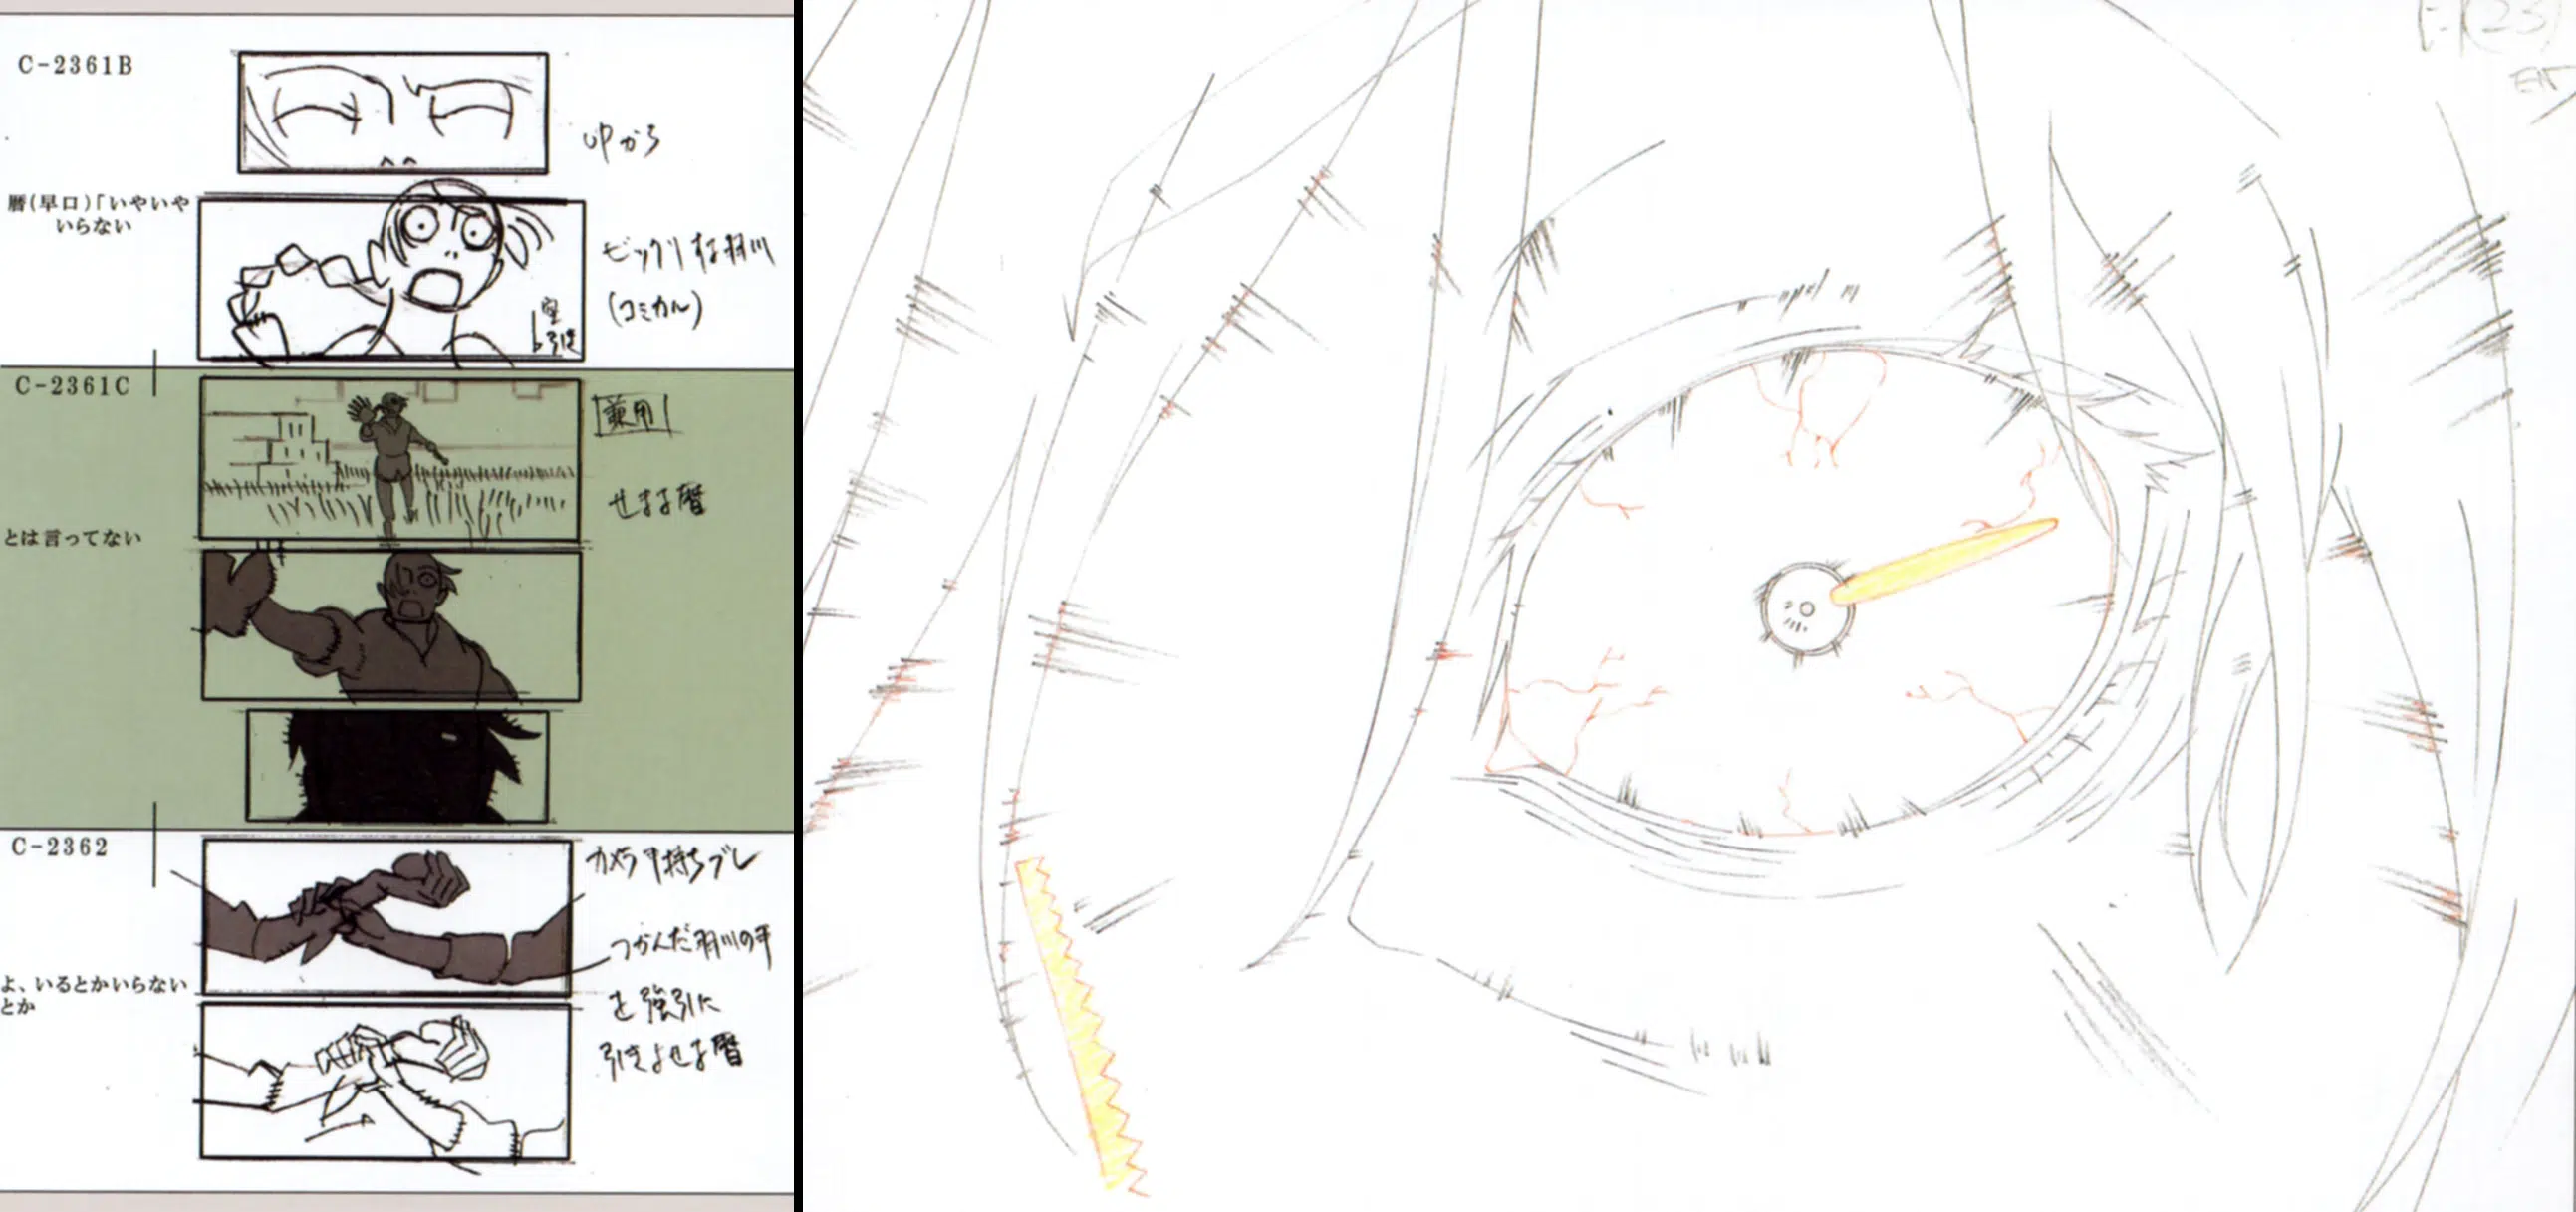 C-2361B
UPから
暦(早口)「いやいや
いらない
ビックリな羽川
(コミカル)
C-2361C
兼用
せまる暦
とは言ってない
C-2362
カメラ手持ちブレ
つかんだ羽川の手
を強引に
引きよせる暦
よ、いるとかいらない
とか
END